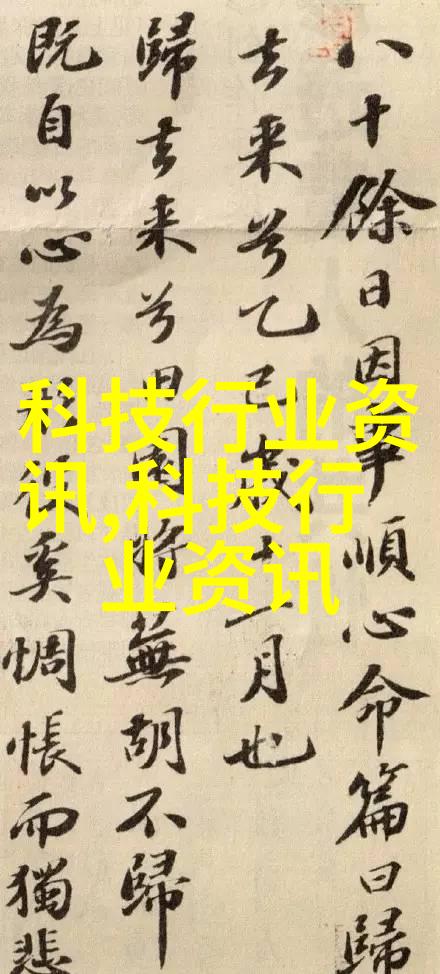 八十餘日因事順心命篇曰歸
去来兮乙巳歲十一月也
歸去来兮田園將蕪胡不歸
既自以心為形役奚惆悵而獨悲
科技行业资
讯,科技行
业资讯